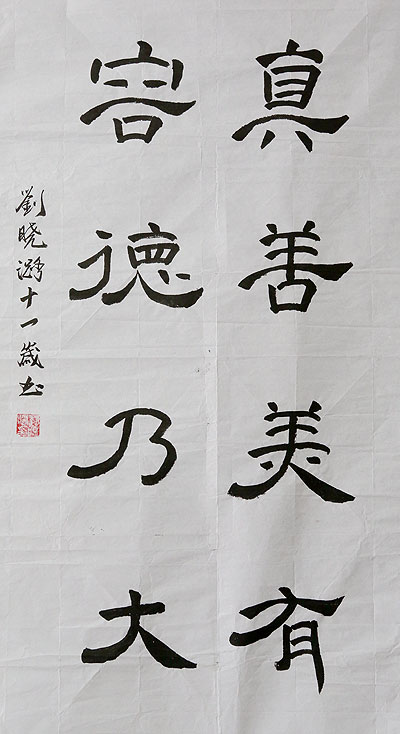 真善美有
容德乃大
劉晓十一歲书